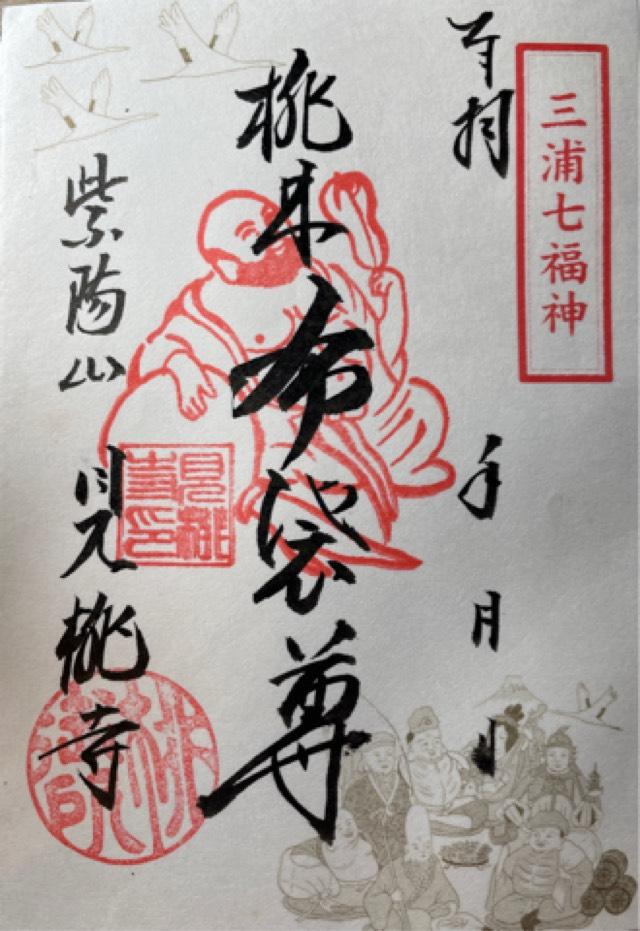 三浦七福神
奉拝
年 月 日
桃林布袋尊
紫陽山 見桃寺
見桃寺印